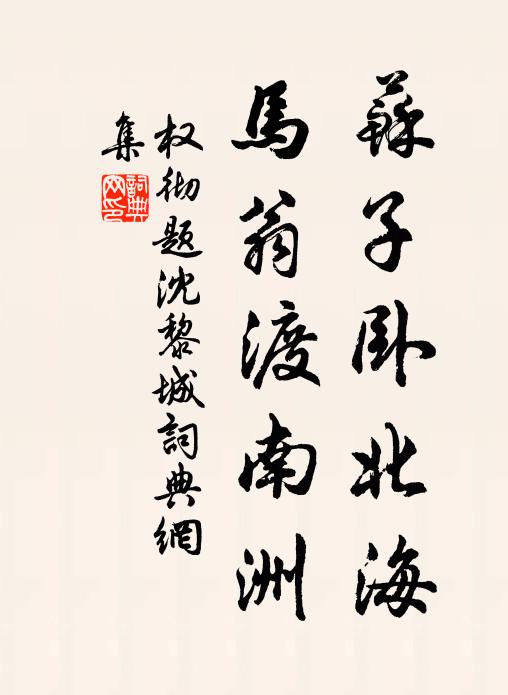 蘇子卧北海
馬翁渡南洲
权彻題沈黎城詞典網
集
詞典網印